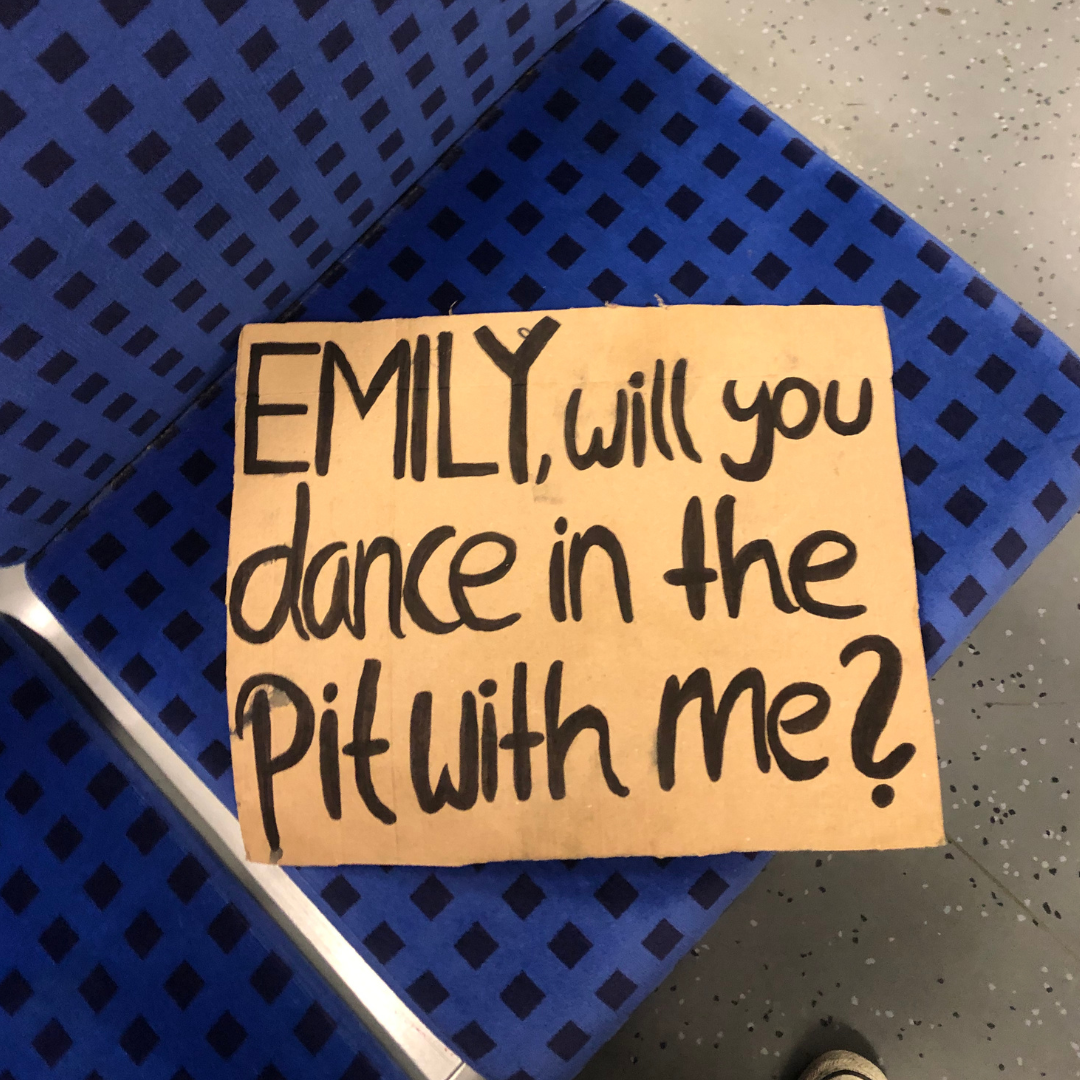 EMILY, will you
dance in the
Pit with me?